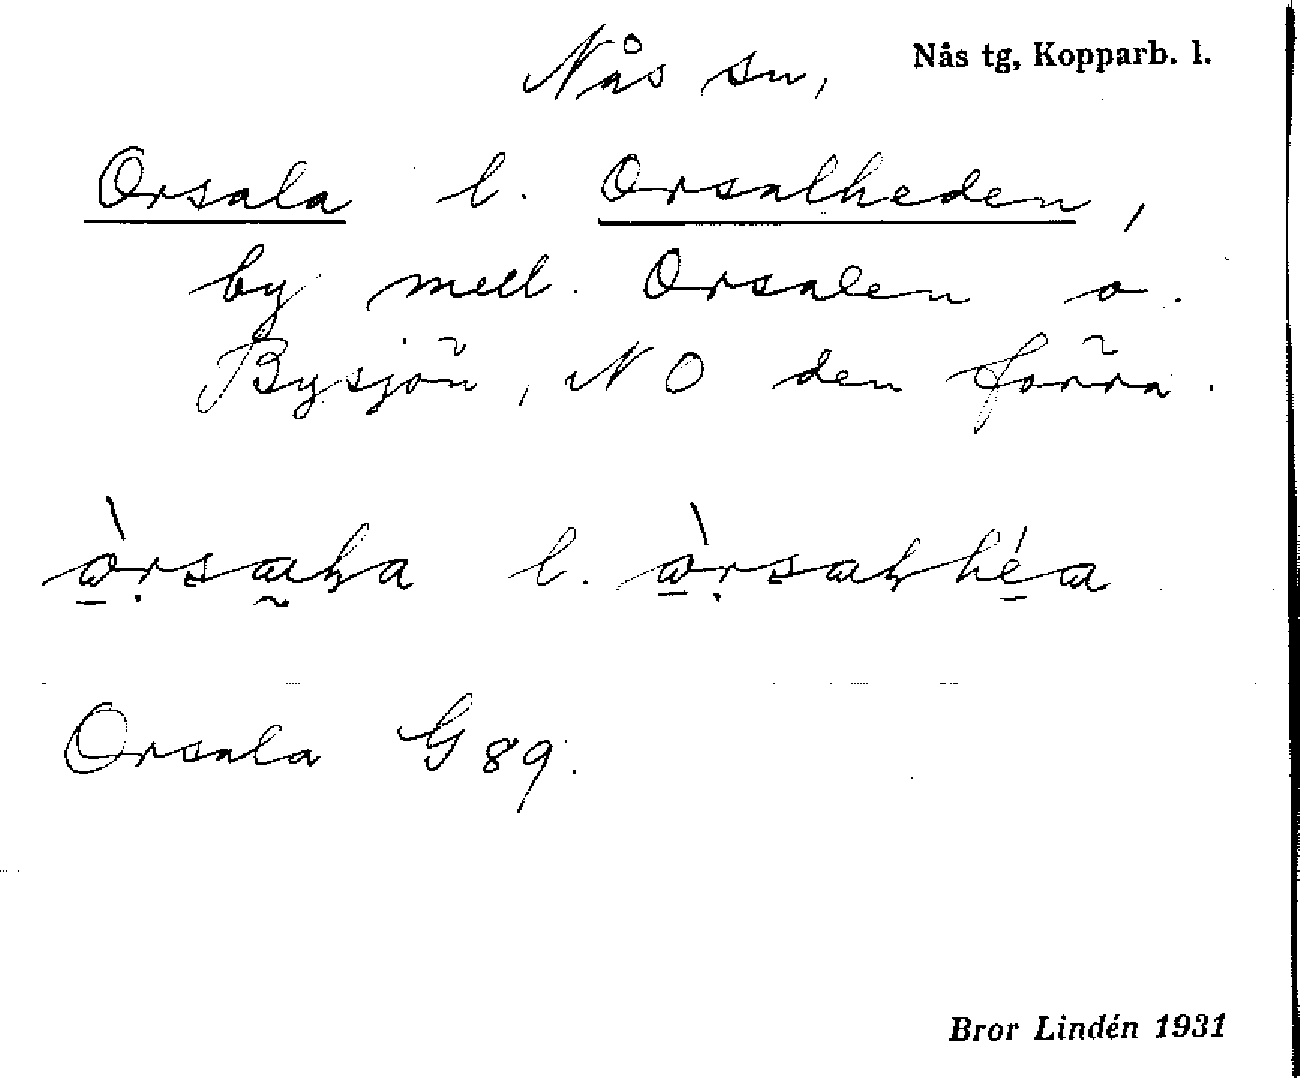 Nås sn, Nås tg, Kopparb. l.
Orsala l. Orsalheden,
by mell. Orsalen o.
Bysjön, NO den förra.
l.
Orsala G 89.
Bror Lindén 1931